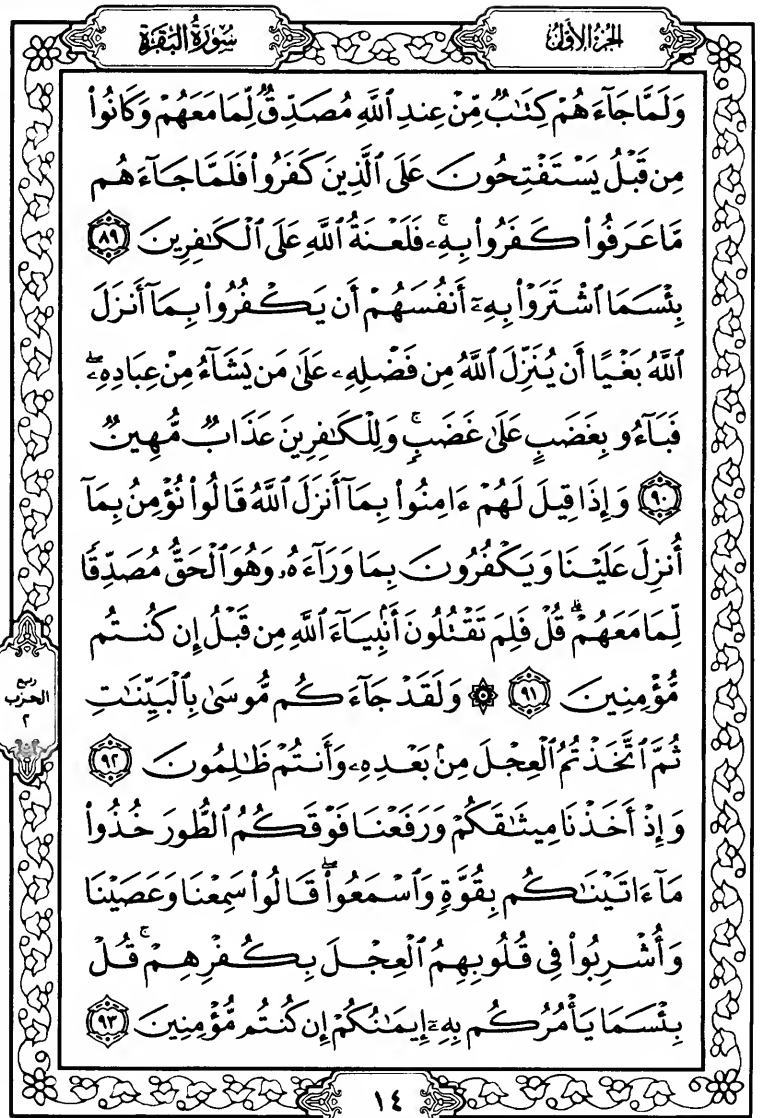 سُورَةُ البَقَرَةِ
الجُزْءُ الأَوَّلُ
وَلَمَّا جَآءَهُمْ كِتَٰبٌ مِّنْ عِندِ ٱللَّهِ مُصَدِّقٌ لِّمَا مَعَهُمْ وَكَانُوا۟
مِن قَبْلُ يَسْتَفْتِحُونَ عَلَى ٱلَّذِينَ كَفَرُوا۟ فَلَمَّا جَآءَهُم
مَّا عَرَفُوا۟ كَفَرُوا۟ بِهِۦۚ فَلَعْنَةُ ٱللَّهِ عَلَى ٱلْكَٰفِرِينَ ٨٩
بِئْسَمَا ٱشْتَرَوْا۟ بِهِۦٓ أَنفُسَهُمْ أَن يَكْفُرُوا۟ بِمَآ أَنزَلَ
ٱللَّهُ بَغْيًا أَن يُنَزِّلَ ٱللَّهُ مِن فَضْلِهِۦ عَلَىٰ مَن يَشَآءُ مِنْ عِبَادِهِۦۖ
فَبَآءُو بِغَضَبٍ عَلَىٰ غَضَبٍۚ وَلِلْكَٰفِرِينَ عَذَابٌ مُّهِينٌ
٩٠ وَإِذَا قِيلَ لَهُمْ ءَامِنُوا۟ بِمَآ أَنزَلَ ٱللَّهُ قَالُوا۟ نُؤْمِنُ بِمَآ
أُنزِلَ عَلَيْنَا وَيَكْفُرُونَ بِمَا وَرَآءَهُۥ وَهُوَ ٱلْحَقُّ مُصَدِّقًا
لِّمَا مَعَهُمْۗ قُلْ فَلِمَ تَقْتُلُونَ أَنۢبِيَآءَ ٱللَّهِ مِن قَبْلُ إِن كُنتُم
مُّؤْمِنِينَ ٩١ ۞ وَلَقَدْ جَآءَكُم مُّوسَىٰ بِٱلْبَيِّنَٰتِ
ربع
الحزب
٢
ثُمَّ ٱتَّخَذْتُمُ ٱلْعِجْلَ مِنۢ بَعْدِهِۦ وَأَنتُمْ ظَٰلِمُونَ ٩٢
وَإِذْ أَخَذْنَا مِيثَٰقَكُمْ وَرَفَعْنَا فَوْقَكُمُ ٱلطُّورَ خُذُوا۟
مَآ ءَاتَيْنَٰكُم بِقُوَّةٍ وَٱسْمَعُوا۟ۖ قَالُوا۟ سَمِعْنَا وَعَصَيْنَا
وَأُشْرِبُوا۟ فِى قُلُوبِهِمُ ٱلْعِجْلَ بِكُفْرِهِمْۚ قُلْ
بِئْسَمَا يَأْمُرُكُم بِهِۦٓ إِيمَٰنُكُمْ إِن كُنتُم مُّؤْمِنِينَ ٩٣
١٤